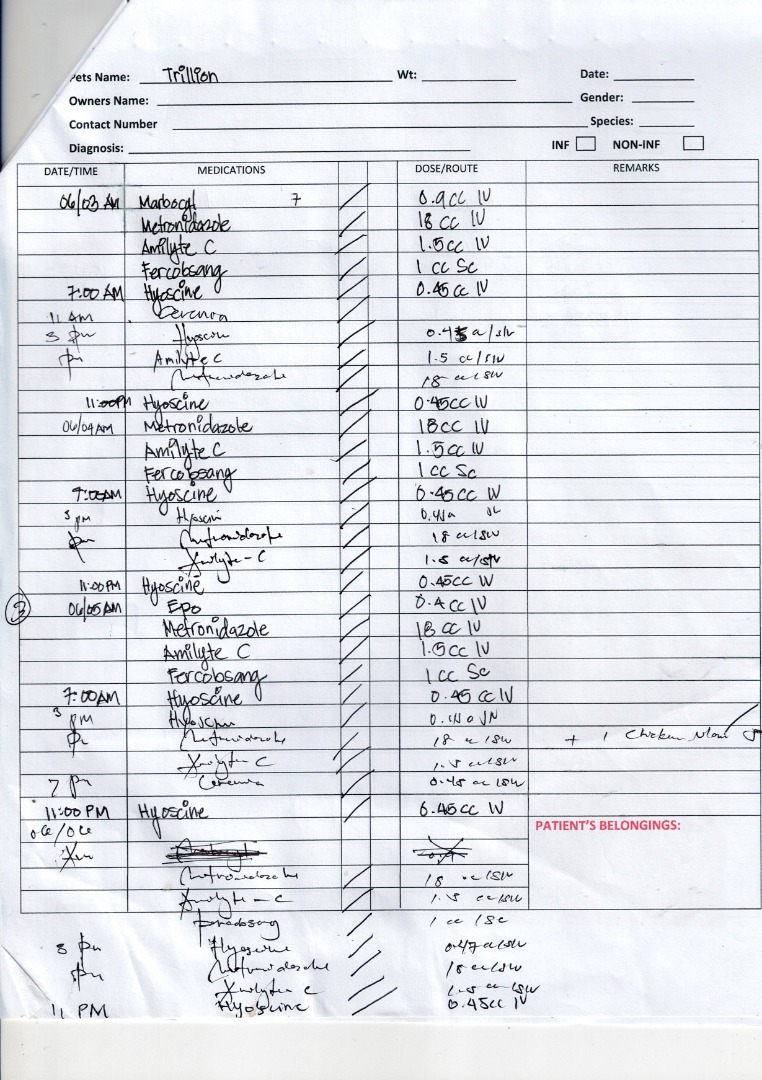 Pets Name: Trillion Wt: Date:
Owners Name: Gender:
Contact Number Species:
Diagnosis: INF NON-INF
DATE/TIME MEDICATIONS DOSE/ROUTE REMARKS
06/03 AM Marbocyl 7 0.9cc IV
Metronidazole 18 cc IV
Amilyte C 1.5cc IV
Fercobsang 1 cc Sc
7:00 AM Hyoscine 0.45 cc IV
11 AM Cerenia
3 pm
pm Amilyte C 1.5 cc/
Metronidazole 18
11:00PM Hyoscine 0.45cc IV
06/04AM Metronidazole 18cc IV
Amilyte C 1.5cc IV
Fercobsang 1 cc Sc
7:00AM Hyoscine 0.45cc IV
3 pm
Metronidazole 18
Amilyte-C 1.5
11:00PM Hyoscine 0.45cc IV
3 06/05AM Epo 0.4 cc IV
Metronidazole 18 cc IV
Amilyte C 1.5cc IV
Fercobsang 1 cc Sc
7:00AM Hyoscine 0.45 cc IV
3 pm Hyoscine
Metronidazole 18 + 1 Chicken
Amilyte C 1.5
7 pm Cerenia 0.45
11:00 PM Hyoscine 0.45cc IV
PATIENT'S BELONGINGS:
06/06
Metronidazole 18
Amilyte-C 1.5
Fercobsang 1 cc /Sc
3 pm Hyoscine
Metronidazole 18
Amilyte C 1.5
11 PM Hyoscine 0.45cc IV